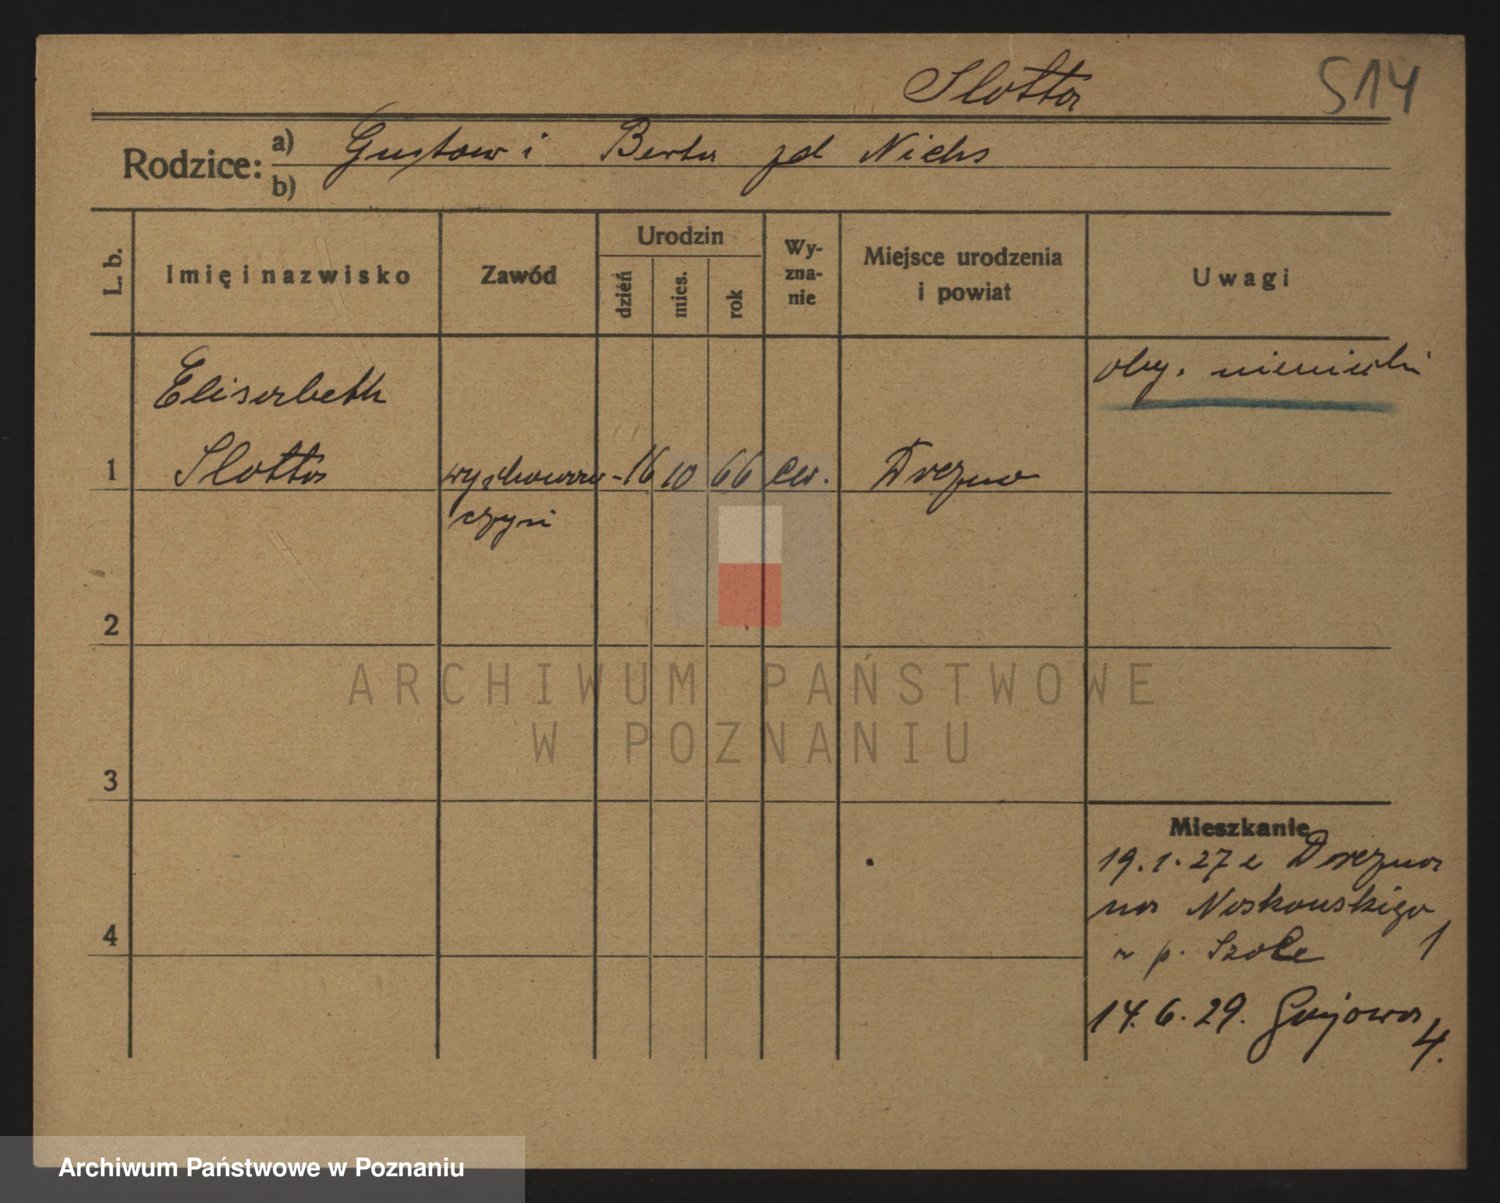 Slotta
S14
Rodzice:
a) Gustaw i Berta zd Nichs
b)
L. b.
Imię i nazwisko
Zawód
Urodzin
dzień
mies.
rok
Wy-
zna-
nie
Miejsce urodzenia
i powiat
Uwagi
oby. niemiecki
Elisabeth
1 Slotta wychowaw- 16 10 66 ew. Drezno
czyni
2
3
4
Mieszkanie
19.1.27 z Drezna
na Noskowskiego 1
p.
14.6.29. Gajowa 4.
ARCHIWUM PAŃSTWOWE
W POZNANIU
Archiwum Państwowe w Poznaniu